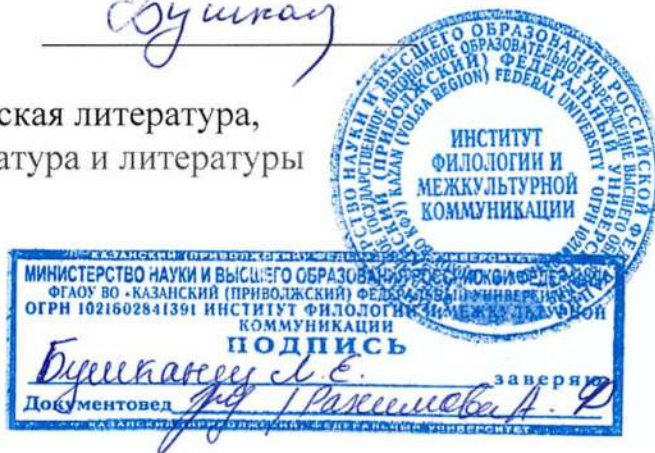 Бушкан
ская литература,
ратура и литературы
МИНИСТЕРСТВО НАУКИ И ВЫСШЕГО ОБРАЗОВАНИЯ РОССИЙСКОЙ ФЕ
ГОСУДАРСТВЕННОЕ АВТОНОМНОЕ ОБРАЗОВАТЕЛЬНОЕ УЧРЕЖДЕНИЕ ВЫСШЕГО
(ПРИВОЛЖСКИЙ) ФЕДЕРАЛЬНЫЙ УНИВЕРС
КФУ) KAZAN (VOLGA REGION) FEDERAL UNIVERSITY • ОГРН
ИНСТИТУТ
ФИЛОЛОГИИ И
МЕЖКУЛЬТУРНОЙ
КОММУНИКАЦИИ
КАЗАНСКИЙ (ПРИВОЛЖСКИЙ) ФЕДЕРАЛЬНЫЙ УНИВЕРСИТЕТ
МИНИСТЕРСТВО НАУКИ И ВЫСШЕГО ОБРАЗОВАНИЯ РОССИЙСКОЙ ФЕДЕРАЦИИ
ФГАОУ ВО «КАЗАНСКИЙ (ПРИВОЛЖСКИЙ) ФЕДЕРАЛЬНЫЙ УНИВЕРСИТЕТ
ОГРН 1021602841391 ИНСТИТУТ ФИЛОЛОГИИ И МЕЖКУЛЬТУРНОЙ
КОММУНИКАЦИИ
ПОДПИСЬ
Бушканец Л. Е. заверяю
Документовед Рахимова А. Ф
КАЗАНСКИЙ (ПРИВОЛЖСКИЙ) ФЕДЕРАЛЬНЫЙ УНИВЕРСИТЕТ